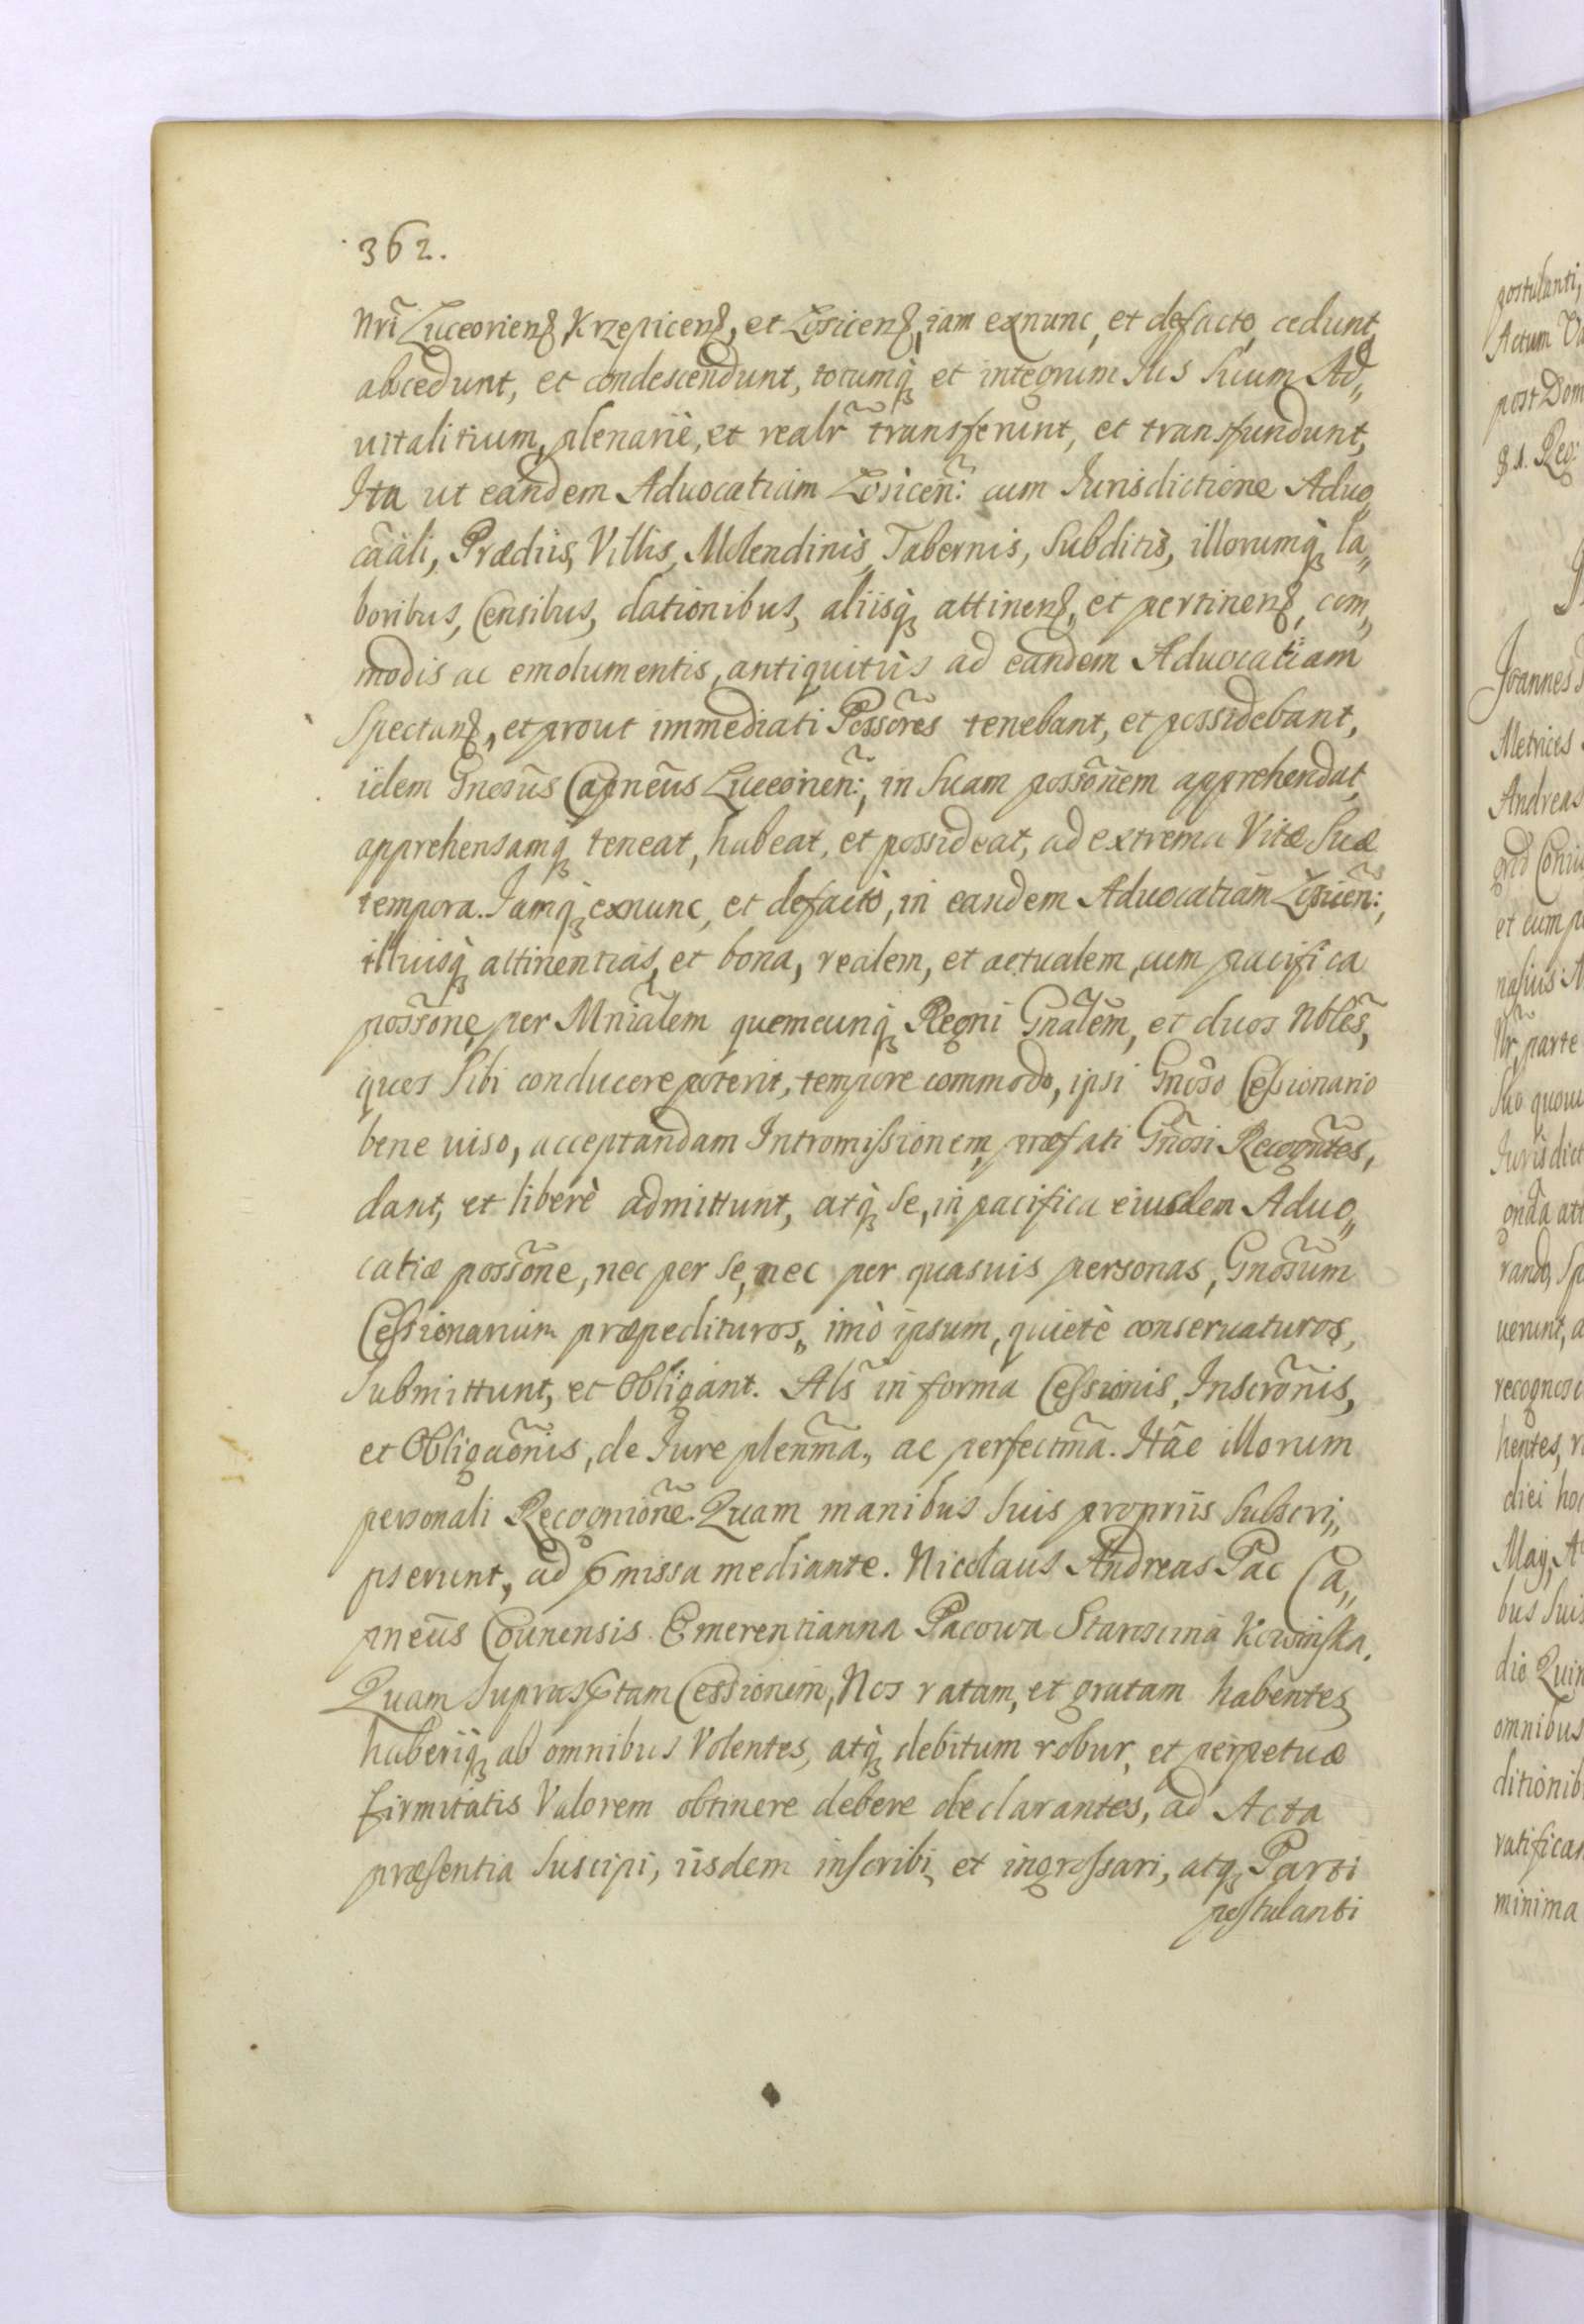 362.
Nrĩ Luceorienẞ, Krzepicenẞ, et Łosicenẞ, iam exnunc, et defacto, cedunt,
abscedunt, et condescendunt, totumq̀ et integrum Ius Suum Ad„
uitalitium, plenariè, et realr̃ transferunt, et transfundunt,
Ita ut eandem Aduocatiam Łosiceñ: cum Iurisdictione Aduo„
cãali, Prædiis, Villis, Molendinis, Tabernis, Subditis, illorumq̀ la„
boribus, Censibus, dationibus, aliisq̀ attinenẞ, et pertinenẞ, com„
modis ac emolumentis, antiquitùs ad eandem Aduocatiam
Spectanẞ, et prout immediati Possõres tenebant, et possidebant,
idem Gnosũs Capneũs Luceorieñ:, in Suam possõnem apprehendat,
apprehensamq̀ teneat, habeat, et possideat, ad extrema Vitæ Suæ
tempora. Iamq̀ exnunc, et defactò, in eandem Aduocatiam Łosiceñ:,
illiusq̀ attinentias, et bona, realem, et actualem, cum pacifica
possõne, per Mniãlem quemcunq̀ Regni Gnãlem, et duos Nblẽs,
quos Sibi conducere poterit, tempore commodo, ipsi Gnõso Cessionario
bene uiso, acceptandam Intromissionem, præfati Gnõsi Recogñtes,
dant, et liberè admittunt, atq̀ Se, in pacifica eiusdem Aduo„
catiæ possõne, nec per Se, nec per quasuis personas, Gnõsum
Cessionarium præpedituros, imò ipsum, quietè conseruaturos,
Submittunt, et Obligant. Als̃ in forma Cessionis, Inscrõnis,
et Obligaõnis, de Iure plenm̃a, ac perfectm̃a. Hãc illorum
personali Recogniõne. Quam manibus Suis propriis Subscri„
pserunt, ad pmissa mediante. Nicolaus Andreas Pac Ca„
pneũs Counensis. Emerentianna Pacowa Starościna Kowinska.
Quam Suprasptam Cessionem, Nos ratam, et gratam habentes,
haberiq̀ ab omnibus Volentes, atq̀ debitum robur, et perpetuæ
firmitatis Valorem obtinere debere declarantes, ad Acta
præsentia Suscipi, iisdem inscribi, et ingrossari, atq̀ Parti
postulanti